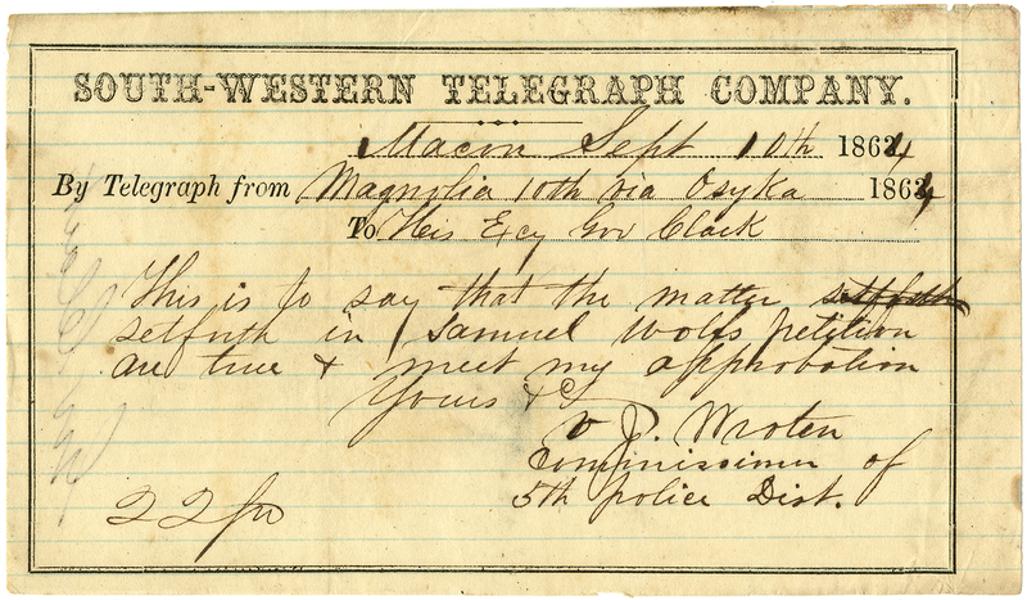 SOUTH-WESTERN TELEGRAPH COMPANY.
Macon Sept 10th 1864
By Telegraph from Magnolia 10th via Osyka 1864
To His Excy Gov Clark
This is to say that the matter setforth
setforth in Samuel Wolfs petition
are true & meet my approbation
Yours &C
V J. Wroten
Comminissioner of
5th police Dist.
22